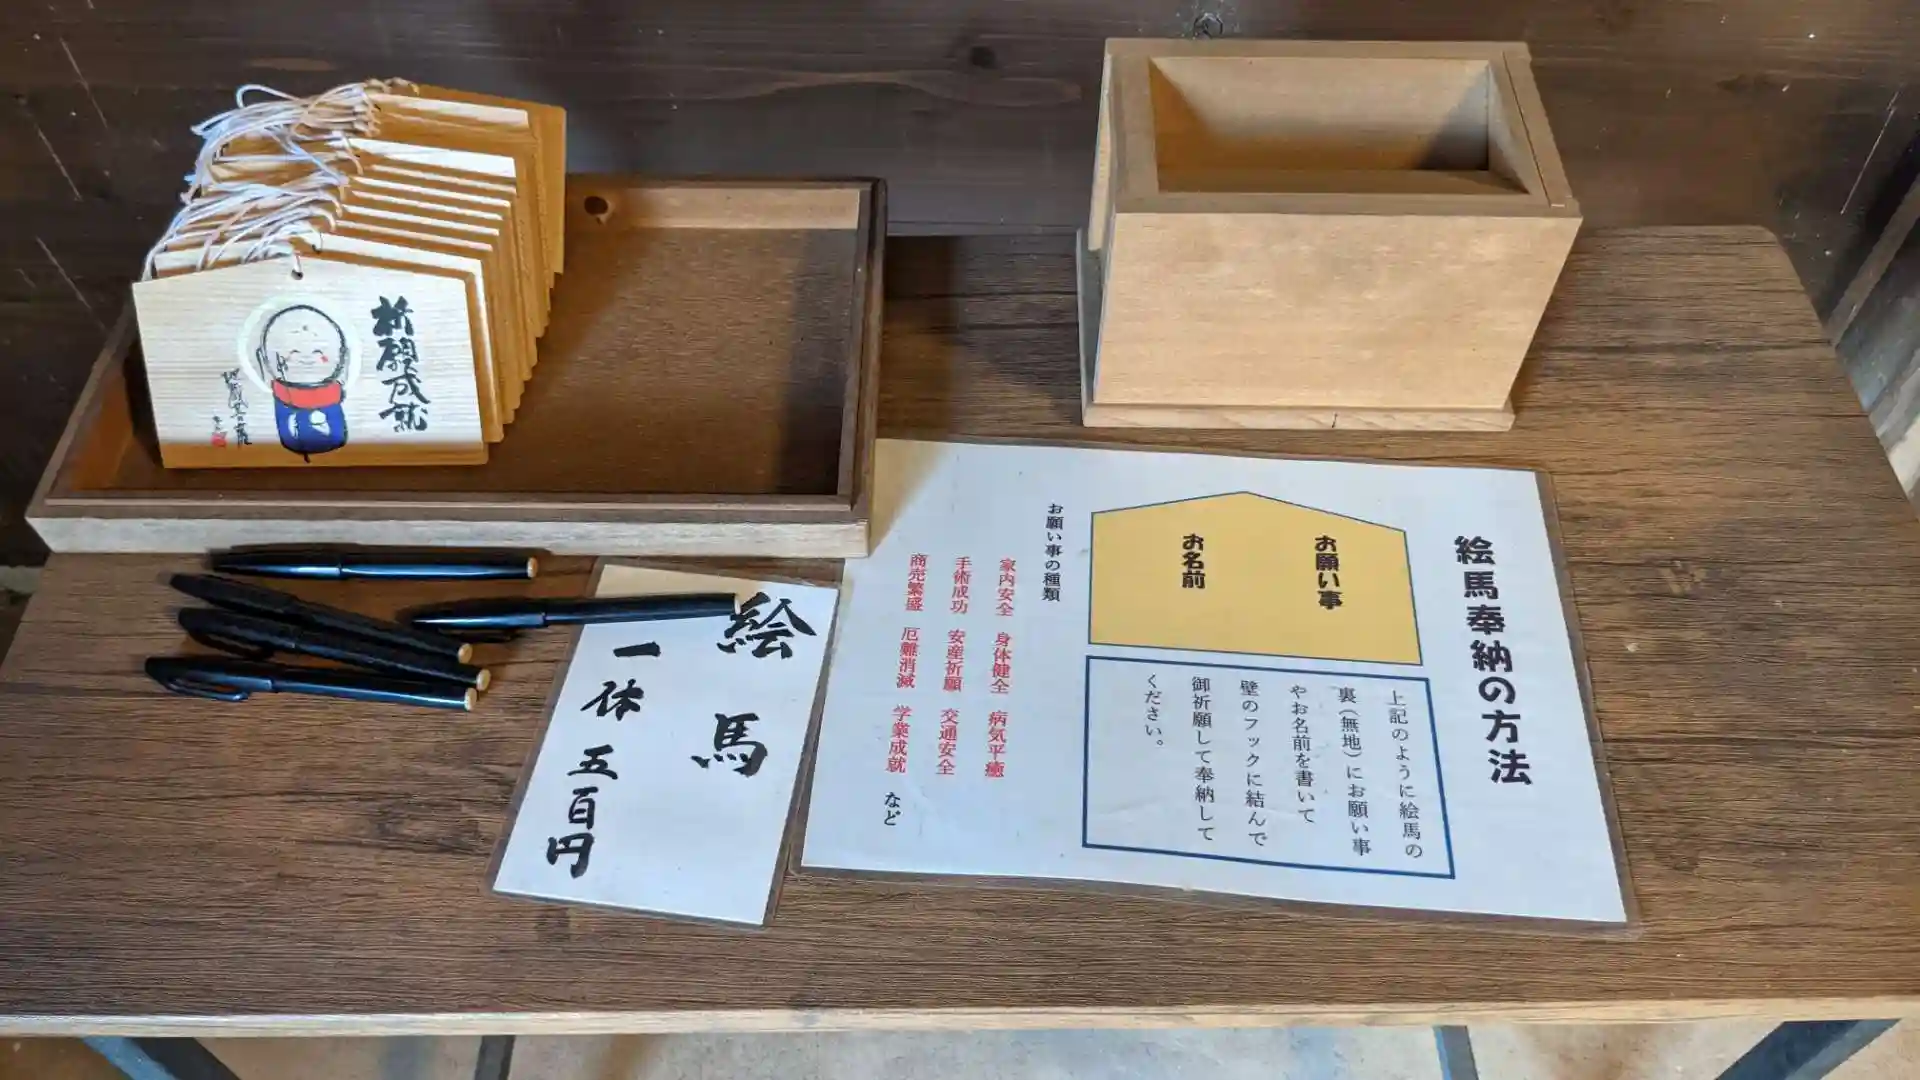 絵馬奉納の方法
お願い事
お名前
上記のように絵馬の
裏(無地)にお願い事
やお名前を書いて
壁のフックに結んで
御祈願して奉納して
ください。
お願い事の種類
家内安全 身体健全 病気平癒
手術成功 安産祈願 交通安全
商売繁盛 厄難消滅 学業成就 など
絵馬
一体 五百円
祈願成就
地蔵菩薩